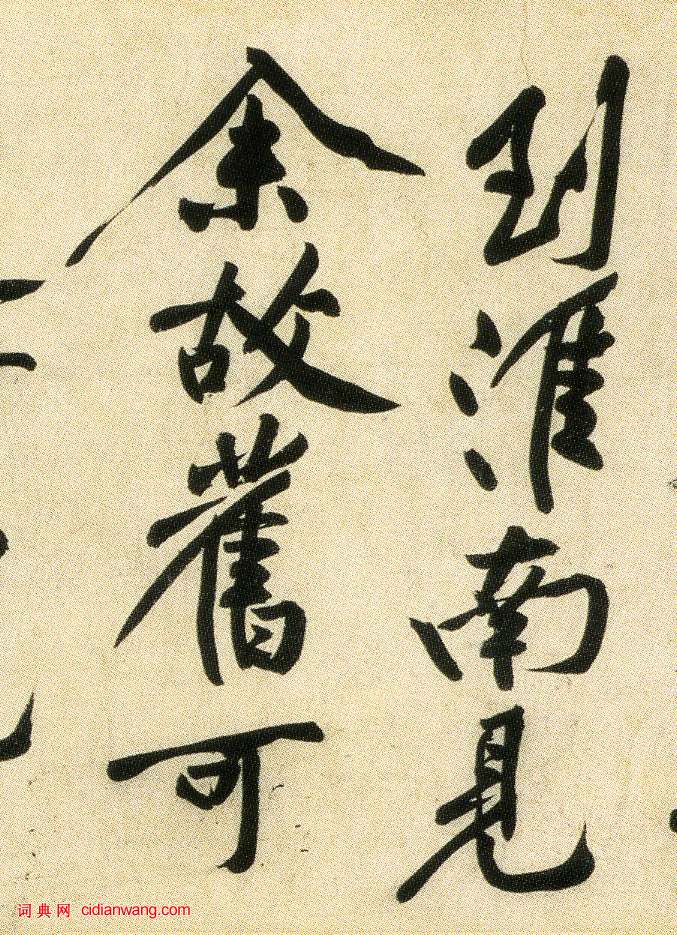 到淮南見
余故舊可
词典网 cidianwang.com